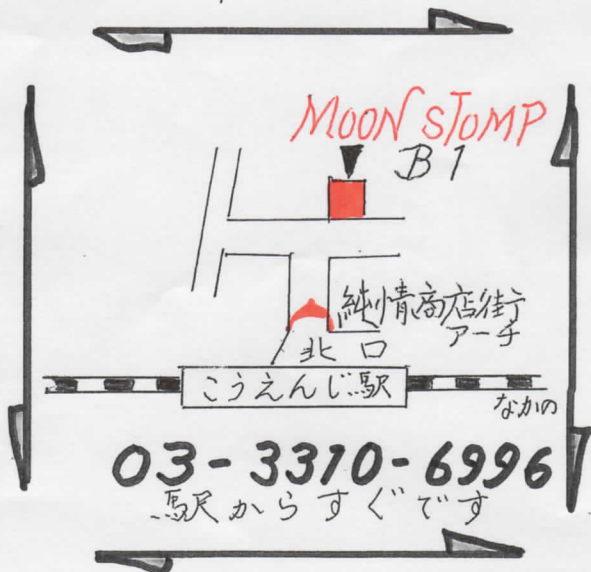 MOON STOMP
B1
純情商店街
アーチ
北口
こうえんじ駅
なかの
03-3310-6996
駅からすぐです